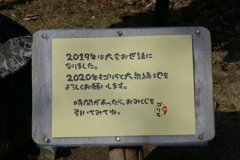 2019年は大変お世話に
なりました。
2020年もゴリラと大熱緑地を
よろしくお願いします。
時間があったら、おみくじを
引いてみてね。
ゴリラ